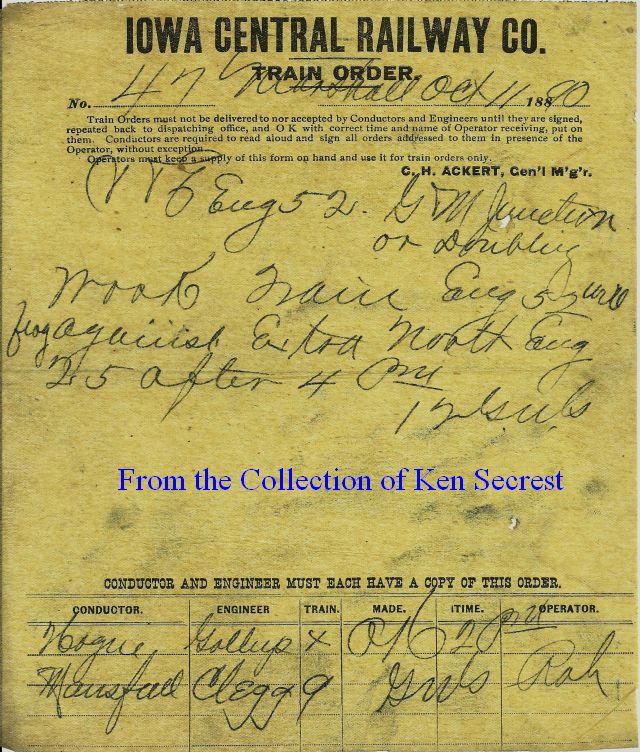 IOWA CENTRAL RAILWAY CO.
TRAIN ORDER.
No. 47 Marshall Oct 11 188 90
Train Orders must not be delivered to nor accepted by Conductors and Engineers until they are signed,
repeated back to dispatching office, and O K with correct time and name of Operator receiving, put on
them. Conductors are required to read aloud and sign all orders addressed to them in presence of the
Operator, without exception.
Operators must keep a supply of this form on hand and use it for train orders only.
C. H. ACKERT, Gen'l M'g'r.
Eng 52. G & M Junction
or Doubling
Work Train Eng 52 will
flag against Extra North Eng
25 after 4 PM
12 GWS
From the Collection of Ken Secrest
CONDUCTOR AND ENGINEER MUST EACH HAVE A COPY OF THIS ORDER.
CONDUCTOR. ENGINEER TRAIN. MADE. TIME. OPERATOR.
Hogue Gollup x OK 2 PM
Mansfall Clegg 9 GWS Roh